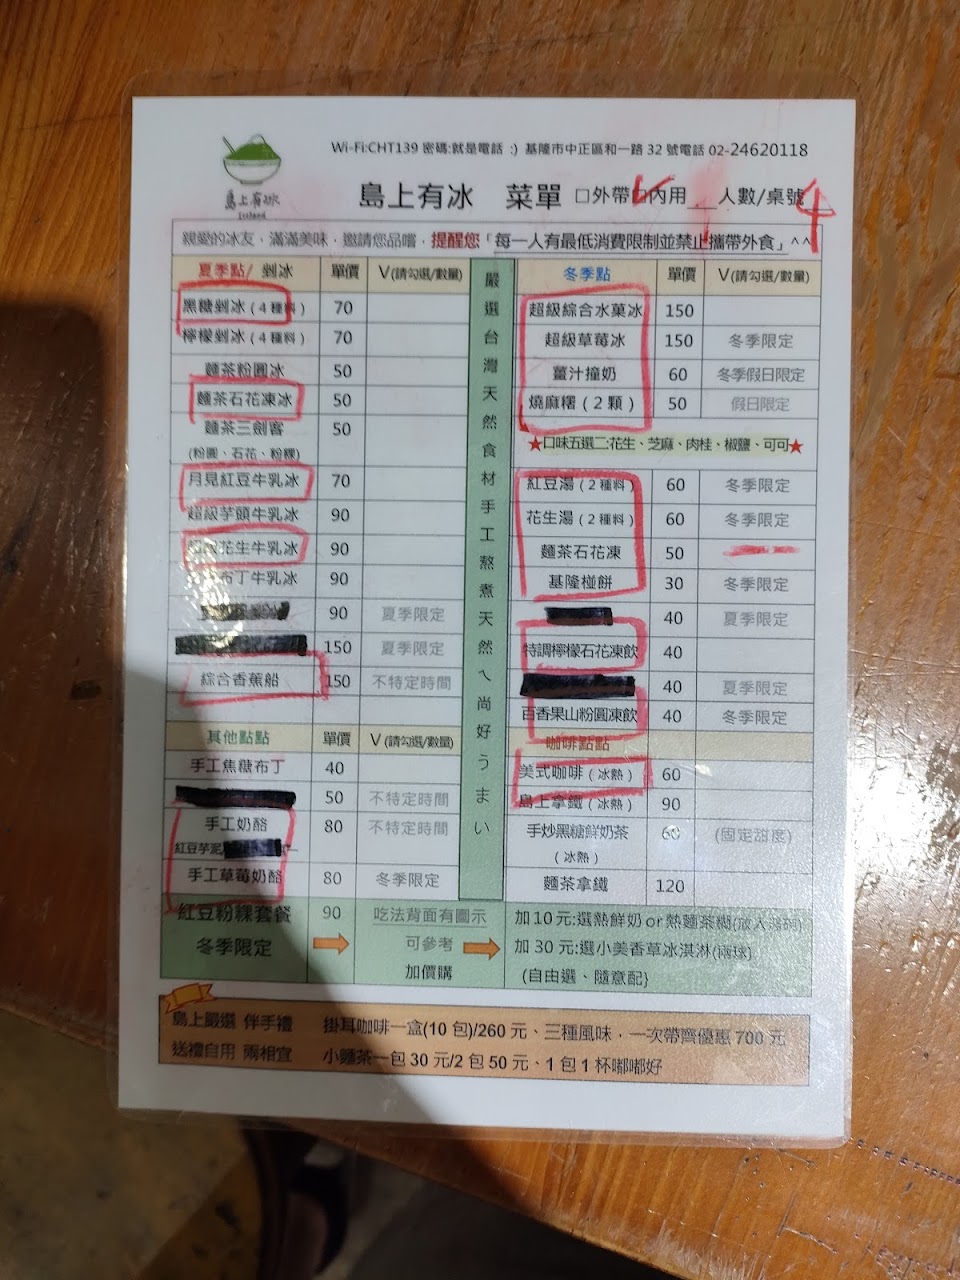 Wi-Fi:CHT139 密碼:就是電話 :) 基隆市中正區和一路 32 號電話 02-24620118
島上有冰
Iceland
島上有冰 菜單 □外帶□內用 人數/桌號 4
親愛的冰友、滿滿美味，邀請您品嚐，提醒您「每一人有最低消費限制並禁止攜帶外食」^^
夏季點/ 剉冰 單價 V(請勾選/數量)
黑糖剉冰(4種料) 70
檸檬剉冰(4種料) 70
麵茶粉圓冰 50
麵茶石花凍冰 50
麵茶三劍客 50
(粉圓、石花、粉粿)
月見紅豆牛乳冰 70
超級芋頭牛乳冰 90
花生牛乳冰 90
布丁牛乳冰 90
90 夏季限定
150 夏季限定
綜合香蕉船 150 不特定時間
其他點點 單價 V(請勾選/數量)
手工焦糖布丁 40
50 不特定時間
手工奶酪 80 不特定時間
紅豆芋泥
手工草莓奶酪 80 冬季限定
嚴選台灣天然食材手工熬煮天然ㄟ尚好うまい
冬季點 單價 V(請勾選/數量)
超級綜合水菓冰 150
超級草莓冰 150 冬季限定
薑汁撞奶 60 冬季假日限定
燒麻糬(2顆) 50 假日限定
★口味五選二:花生、芝麻、肉桂、椒鹽、可可★
紅豆湯(2種料) 60 冬季限定
花生湯(2種料) 60 冬季限定
麵茶石花凍 50
基隆椪餅 30 冬季限定
40 夏季限定
特調檸檬石花凍飲 40
40 夏季限定
百香果山粉圓凍飲 40 冬季限定
咖啡點點
美式咖啡(冰熱) 60
島上拿鐵(冰熱) 90
手炒黑糖鮮奶茶 60 (固定甜度)
(冰熱)
麵茶拿鐵 120
紅豆粉粿套餐 90 吃法背面有圖示
冬季限定 可參考
加價購
加 10 元:選熱鮮奶 or 熱麵茶糊(放入湯碗)
加 30 元:選小美香草冰淇淋(兩球)
(自由選、隨意配}
島上嚴選 伴手禮 掛耳咖啡一盒(10 包)/260 元、三種風味，一次帶齊優惠 700 元
送禮自用 兩相宜 小麵茶一包 30 元/2 包 50 元、1 包 1 杯嘟嘟好